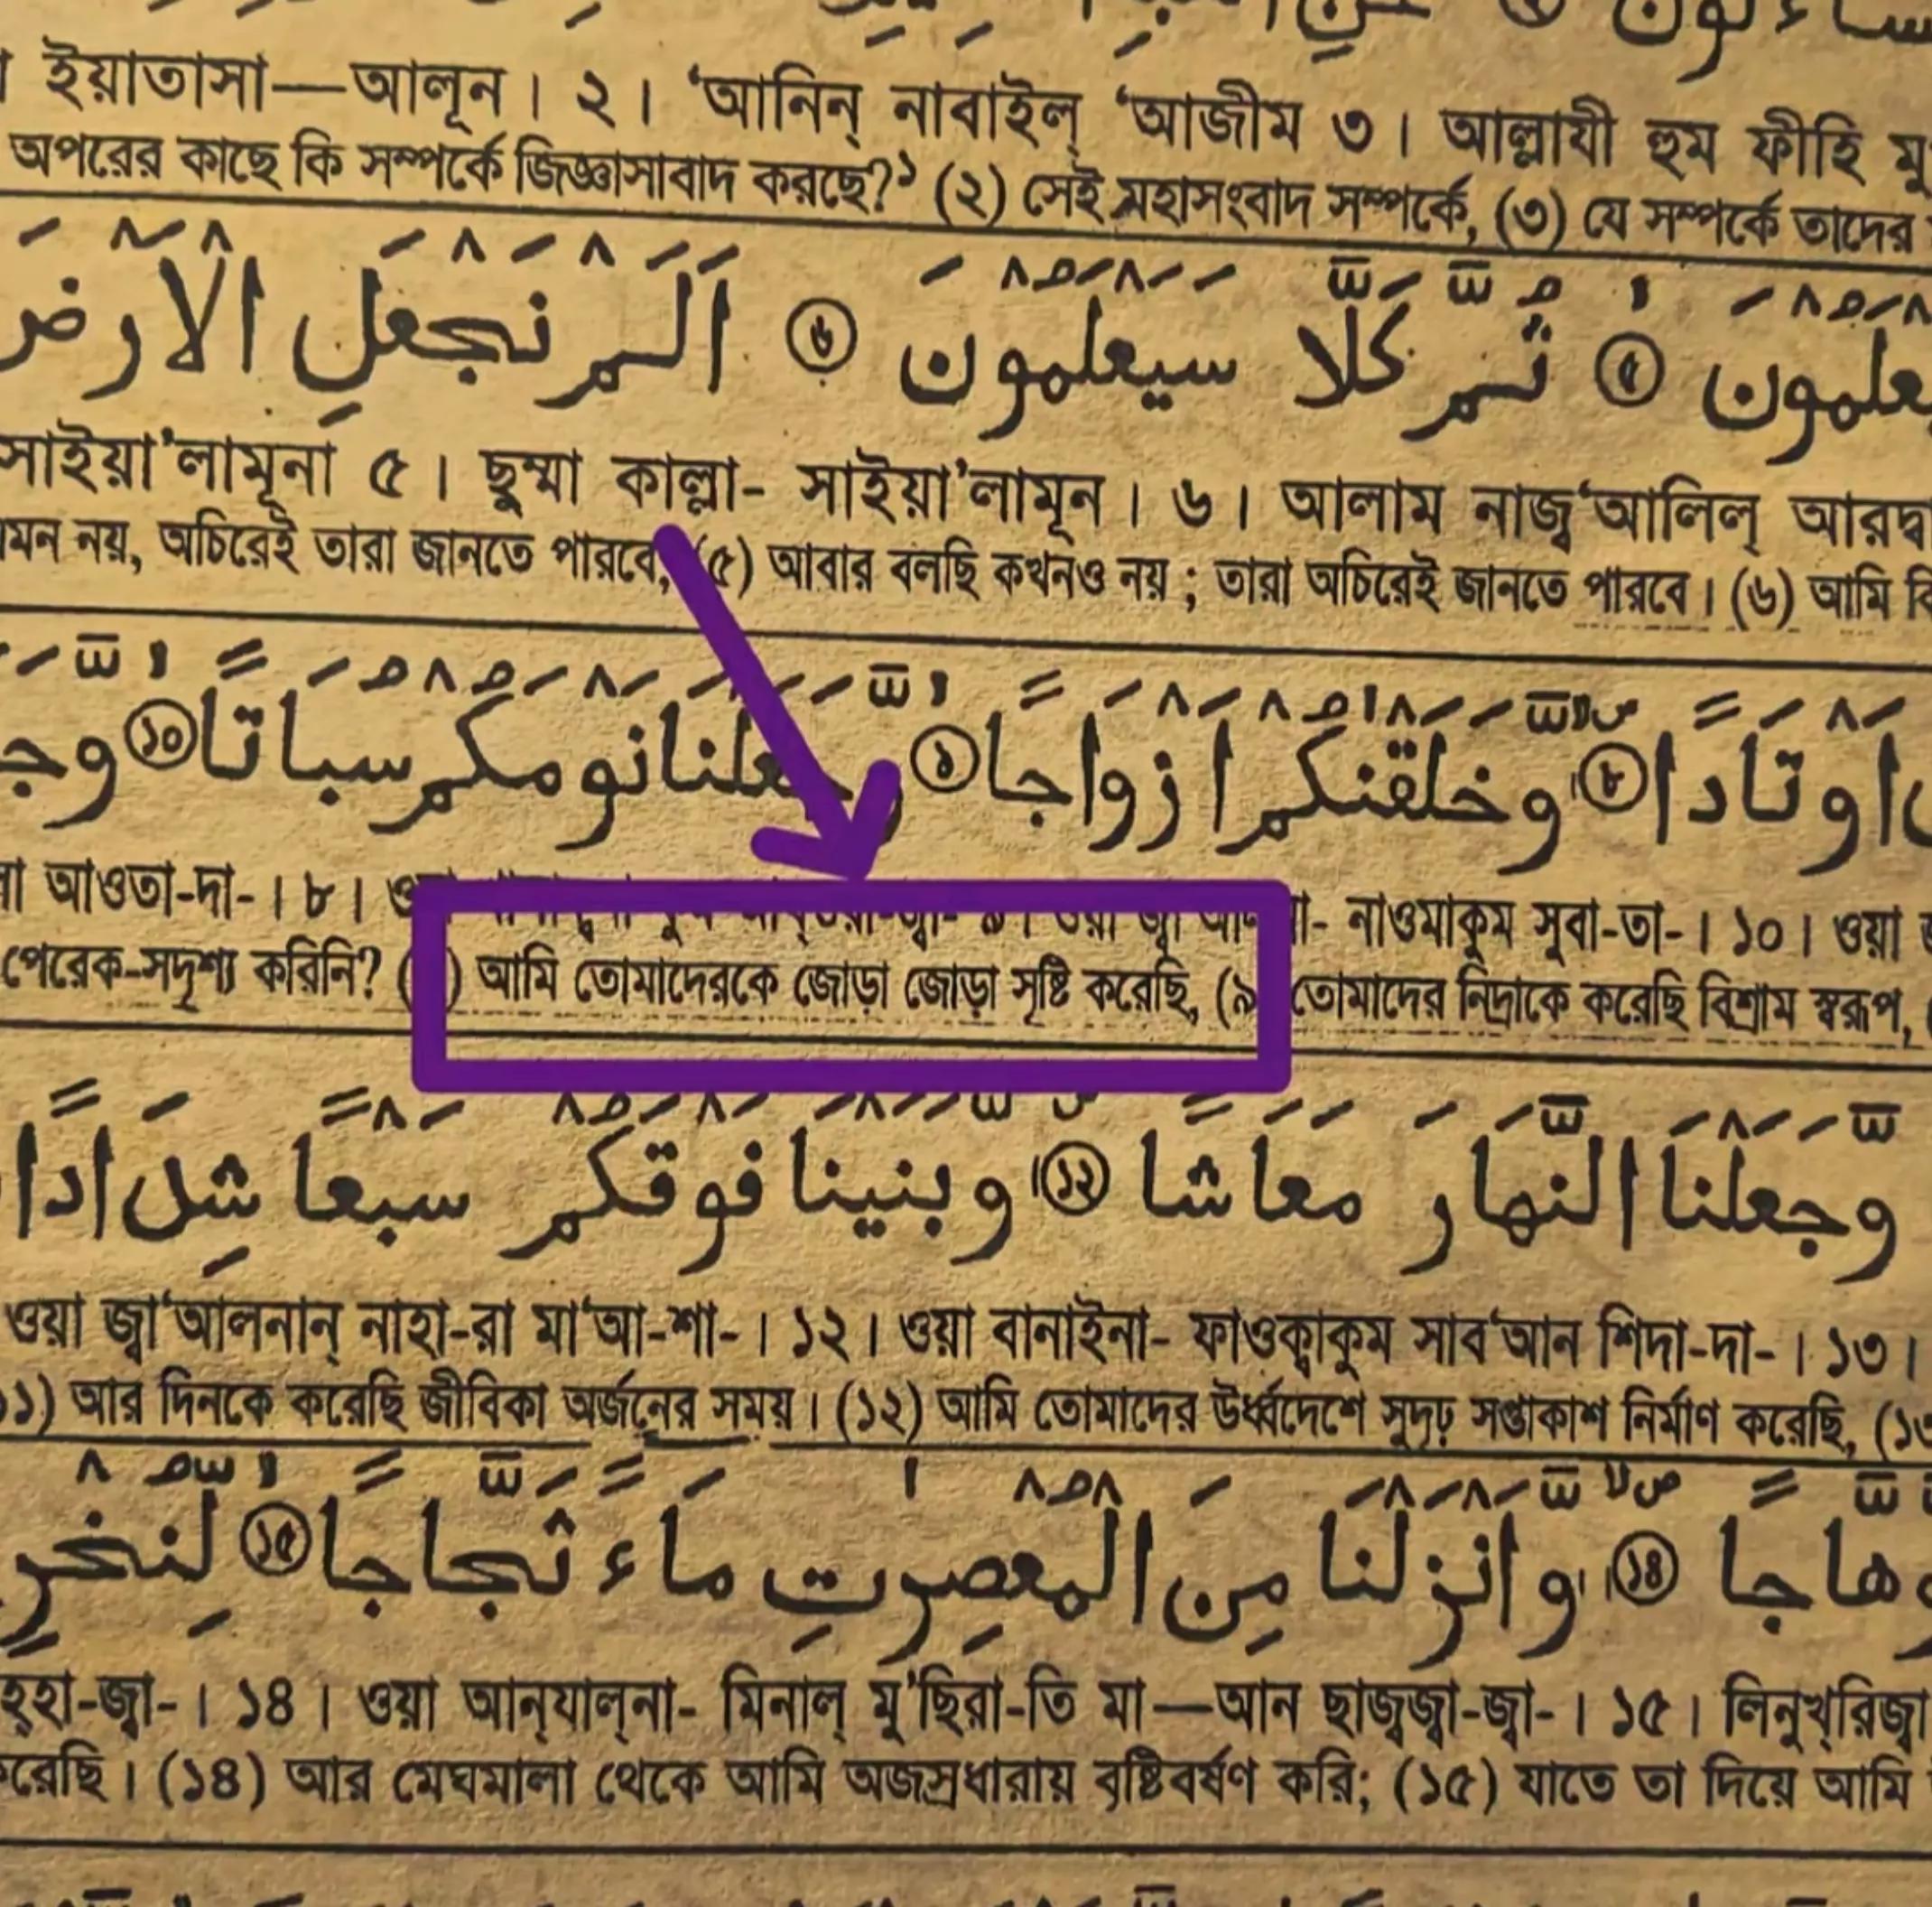 ইয়াতাসা—আলূন। ২। ‘আনিন্ নাবাইল্ ‘আজীম ৩। আল্লাযী হুম ফীহি
অপরের কাছে কি সম্পর্কে জিজ্ঞাসাবাদ করছে?১ (২) সেই মহাসংবাদ সম্পর্কে, (৩) যে সম্পর্কে তাদের
سَيَعْلَمُوْنَ ۝ ثُمَّ كَلَّا سَيَعْلَمُوْنَ ۝ اَلَمْ نَجْعَلِ الْاَرْضَ
সাইয়া’লামূনা ৫। ছুম্মা কাল্লা- সাইয়া’লামূন। ৬। আলাম নাজ্ব‘আলিল্ আরদ্বা
নয়, অচিরেই তারা জানতে পারবে, (৫) আবার বলছি কখনও নয়; তারা অচিরেই জানতে পারবে। (৬) আমি
اَوْتَادًا ۝٨ وَّخَلَقْنٰكُمْ اَزْوَاجًا ۝٩ وَّجَعَلْنَا نَوْمَكُمْ سُبَاتًا ۝১০
আওতা-দা-। ৮। নাওমাকুম সুবা-তা-। ১০। ওয়া
পেরেক-সদৃশ্য করিনি? আমি তোমাদেরকে জোড়া জোড়া সৃষ্টি করেছি, (৯ তোমাদের নিদ্রাকে করেছি বিশ্রাম স্বরূপ,
وَّجَعَلْنَا النَّهَارَ مَعَاشًا ۝১২ وَبَنَيْنَا فَوْقَكُمْ سَبْعًا شِدَادًا
ওয়া জ্বা‘আলনান্ নাহা-রা মা‘আ-শা-। ১২। ওয়া বানাইনা- ফাওক্বাকুম সাব‘আন শিদা-দা-। ১৩।
১) আর দিনকে করেছি জীবিকা অর্জনের সময়। (১২) আমি তোমাদের উর্ধ্বদেশে সুদৃঢ় সপ্তাকাশ নির্মাণ করেছি,
وَّهَّاجًا ۝১৪ وَّاَنْزَلْنَا مِنَ الْمُعْصِرٰتِ مَآءً ثَجَّاجًا ۝১৫
হ্হা-জ্বা-। ১৪। ওয়া আন্‌যাল্‌না- মিনাল্ মু’ছিরা-তি মা—আন ছাজ্বজ্বা-জ্বা-। ১৫। লিনুখ্‌রিজ্বা
করেছি। (১৪) আর মেঘমালা থেকে আমি অজস্রধারায় বৃষ্টিবর্ষণ করি; (১৫) যাতে তা দিয়ে আমি